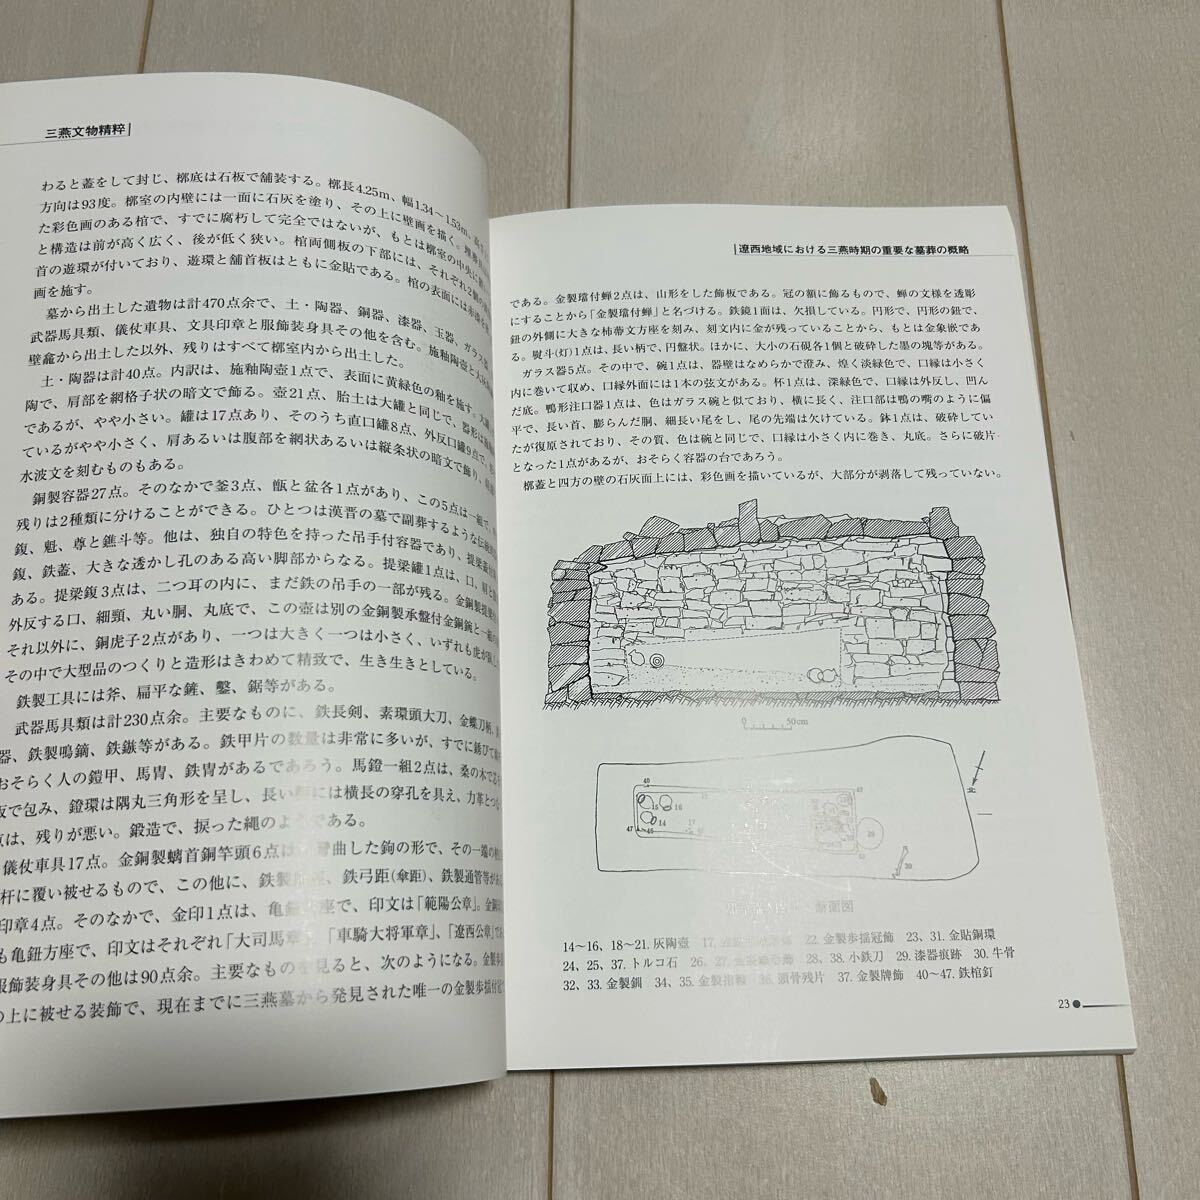 三燕文物精粹
わると蓋をして封じ、槨底は石板で舗装する。槨長4.25m、幅1.34〜1.53m、
方向は93度。槨室の内壁には一面に石灰を塗り、その上に壁画を描く。
た彩色画のある棺で、すでに腐朽して完全ではないが、もとは槨室の中央に
と構造は前が高く広く、後が低く狭い。棺両側板の下部には、それぞれ2個の
首の遊環が付いており、遊環と舗首板はともに金貼である。棺の表面には赤漆を
画を施す。
墓から出土した遺物は計470点余で、土・陶器、銅器、漆器、玉器、ガラス器、
武器馬具類、儀仗車具、文具印章と服飾装身具その他を含む。施釉陶壺と
壁龕から出土した以外、残りはすべて槨室内から出土した。
土・陶器は計40点。内訳は、施釉陶壺1点で、表面に黄緑色の釉を施す。大
陶で、肩部を網格子状の暗文で飾る。壺21点、胎土は大罐と同じで、器形は
であるが、やや小さい。罐は17点あり、そのうち直口罐8点、外反口罐9点で、
ているがやや小さく、肩あるいは腹部を網状あるいは縦条状の暗文で飾り、
水波文を刻むものもある。
銅製容器27点。そのなかで釜3点、甑と盆各1点があり、この5点は一組で、
残りは2種類に分けることができる。ひとつは漢晋の墓で副葬するような伝統的
鍑、魁、尊と鐎斗等。他は、独自の特色を持った吊手付容器であり、提梁
鍑、鉄蓋、大きな透かし孔のある高い脚部からなる。提梁罐1点は、口、肩と
ある。提梁鍑3点は、二つ耳の内に、まだ鉄の吊手の一部が残る。金銅製提梁
外反する口、細頸、丸い胴、丸底で、この壺は別の金銅製承盤付金銅鐎と一組の
それ以外に、銅虎子2点があり、一つは大きく一つは小さく、いずれも虎が
その中で大型品のつくりと造形はきわめて精致で、生き生きとしている。
鉄製工具には斧、扁平な鏟、鑿、鋸等がある。
武器馬具類は計230点余。主要なものに、鉄長剣、素環頭大刀、金蝶刀柄、
器、鉄製鳴鏑、鉄鏃等がある。鉄甲片の数量は非常に多いが、すでに銹びて
おそらく人の鎧甲、馬冑、鉄冑があるであろう。馬鐙一組2点は、桑の木で芯を
板で包み、鐙環は隅丸三角形を呈し、長い柄には横長の穿孔を具え、力革とつな
点は、残りが悪い。鍛造で、捩った縄のようである。
儀仗車具17点。金銅製螭首銅竿頭6点は、彎曲した鉤の形で、その一端の
杆に覆い被せるもので、この他に、鉄製 鉄弓距(傘距)、鉄製通管等が
印章4点。そのなかで、金印1点は、亀鈕方座で、印文は「範陽公章」。金銅
も亀鈕方座で、印文はそれぞれ「大司馬章」、「車騎大将軍章」、「遼西公章」であ
服飾装身具その他は90点余。主要なものを見ると、次のようになる。金製歩揺付冠
の上に被せる装飾で、現在までに三燕墓から発見された唯一の金製歩揺付冠
遼西地域における三燕時期の重要な墓葬の概略
である。金製璫付蝉2点は、山形をした飾板である。冠の額に飾るもので、蝉の文様を透彫
にすることから「金製璫付蝉」と名づける。鉄鏡1面は、欠損している。円形で、円形の鈕で、
鈕の外側に大きな柿蔕文方座を刻み、刻文内に金が残っていることから、もとは金象嵌であ
る。熨斗(灯)1点は、長い柄で、円盤状。ほかに、大小の石硯各1個と破砕した墨の塊等がある。
ガラス器5点。その中で、碗1点は、器壁はなめらかで澄み、煌く淡緑色で、口縁は小さく
内に巻いて収め、口縁外面には1本の弦文がある。杯1点は、深緑色で、口縁は外反し、凹ん
だ底。鴨形注口器1点は、色はガラス碗と似ており、横に長く、注口部は鴨の嘴のように偏
平で、長い首、膨らんだ胴、細長い尾をし、尾の先端は欠けている。鉢1点は、破砕してい
たが復原されており、その質、色は碗と同じで、口縁は小さく内に巻き、丸底。さらに破片
となった1点があるが、おそらく容器の台であろう。
槨蓋と四方の壁の石灰面上には、彩色画を描いているが、大部分が剥落して残っていない。
0 50cm
40
15 16
14
47 46 17
26
30
北
断面図
14〜16、18〜21. 灰陶壺 17. 22. 金製歩揺冠飾 23、31. 金貼銅環
24、25、37. トルコ石 26、27. 28、38. 小鉄刀 29. 漆器痕跡 30. 牛骨
32、33. 金製釧 34、35. 金製指輪 36. 頭骨残片 37. 金製牌飾 40〜47. 鉄棺釘
23